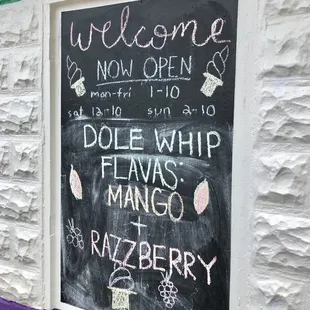 welcome
NOW OPEN
mon-fri 1-10
sat 12-10 sun 2-10
DOLE WHIP
FLAVAS:
MANGO
+
RAZZBERRY